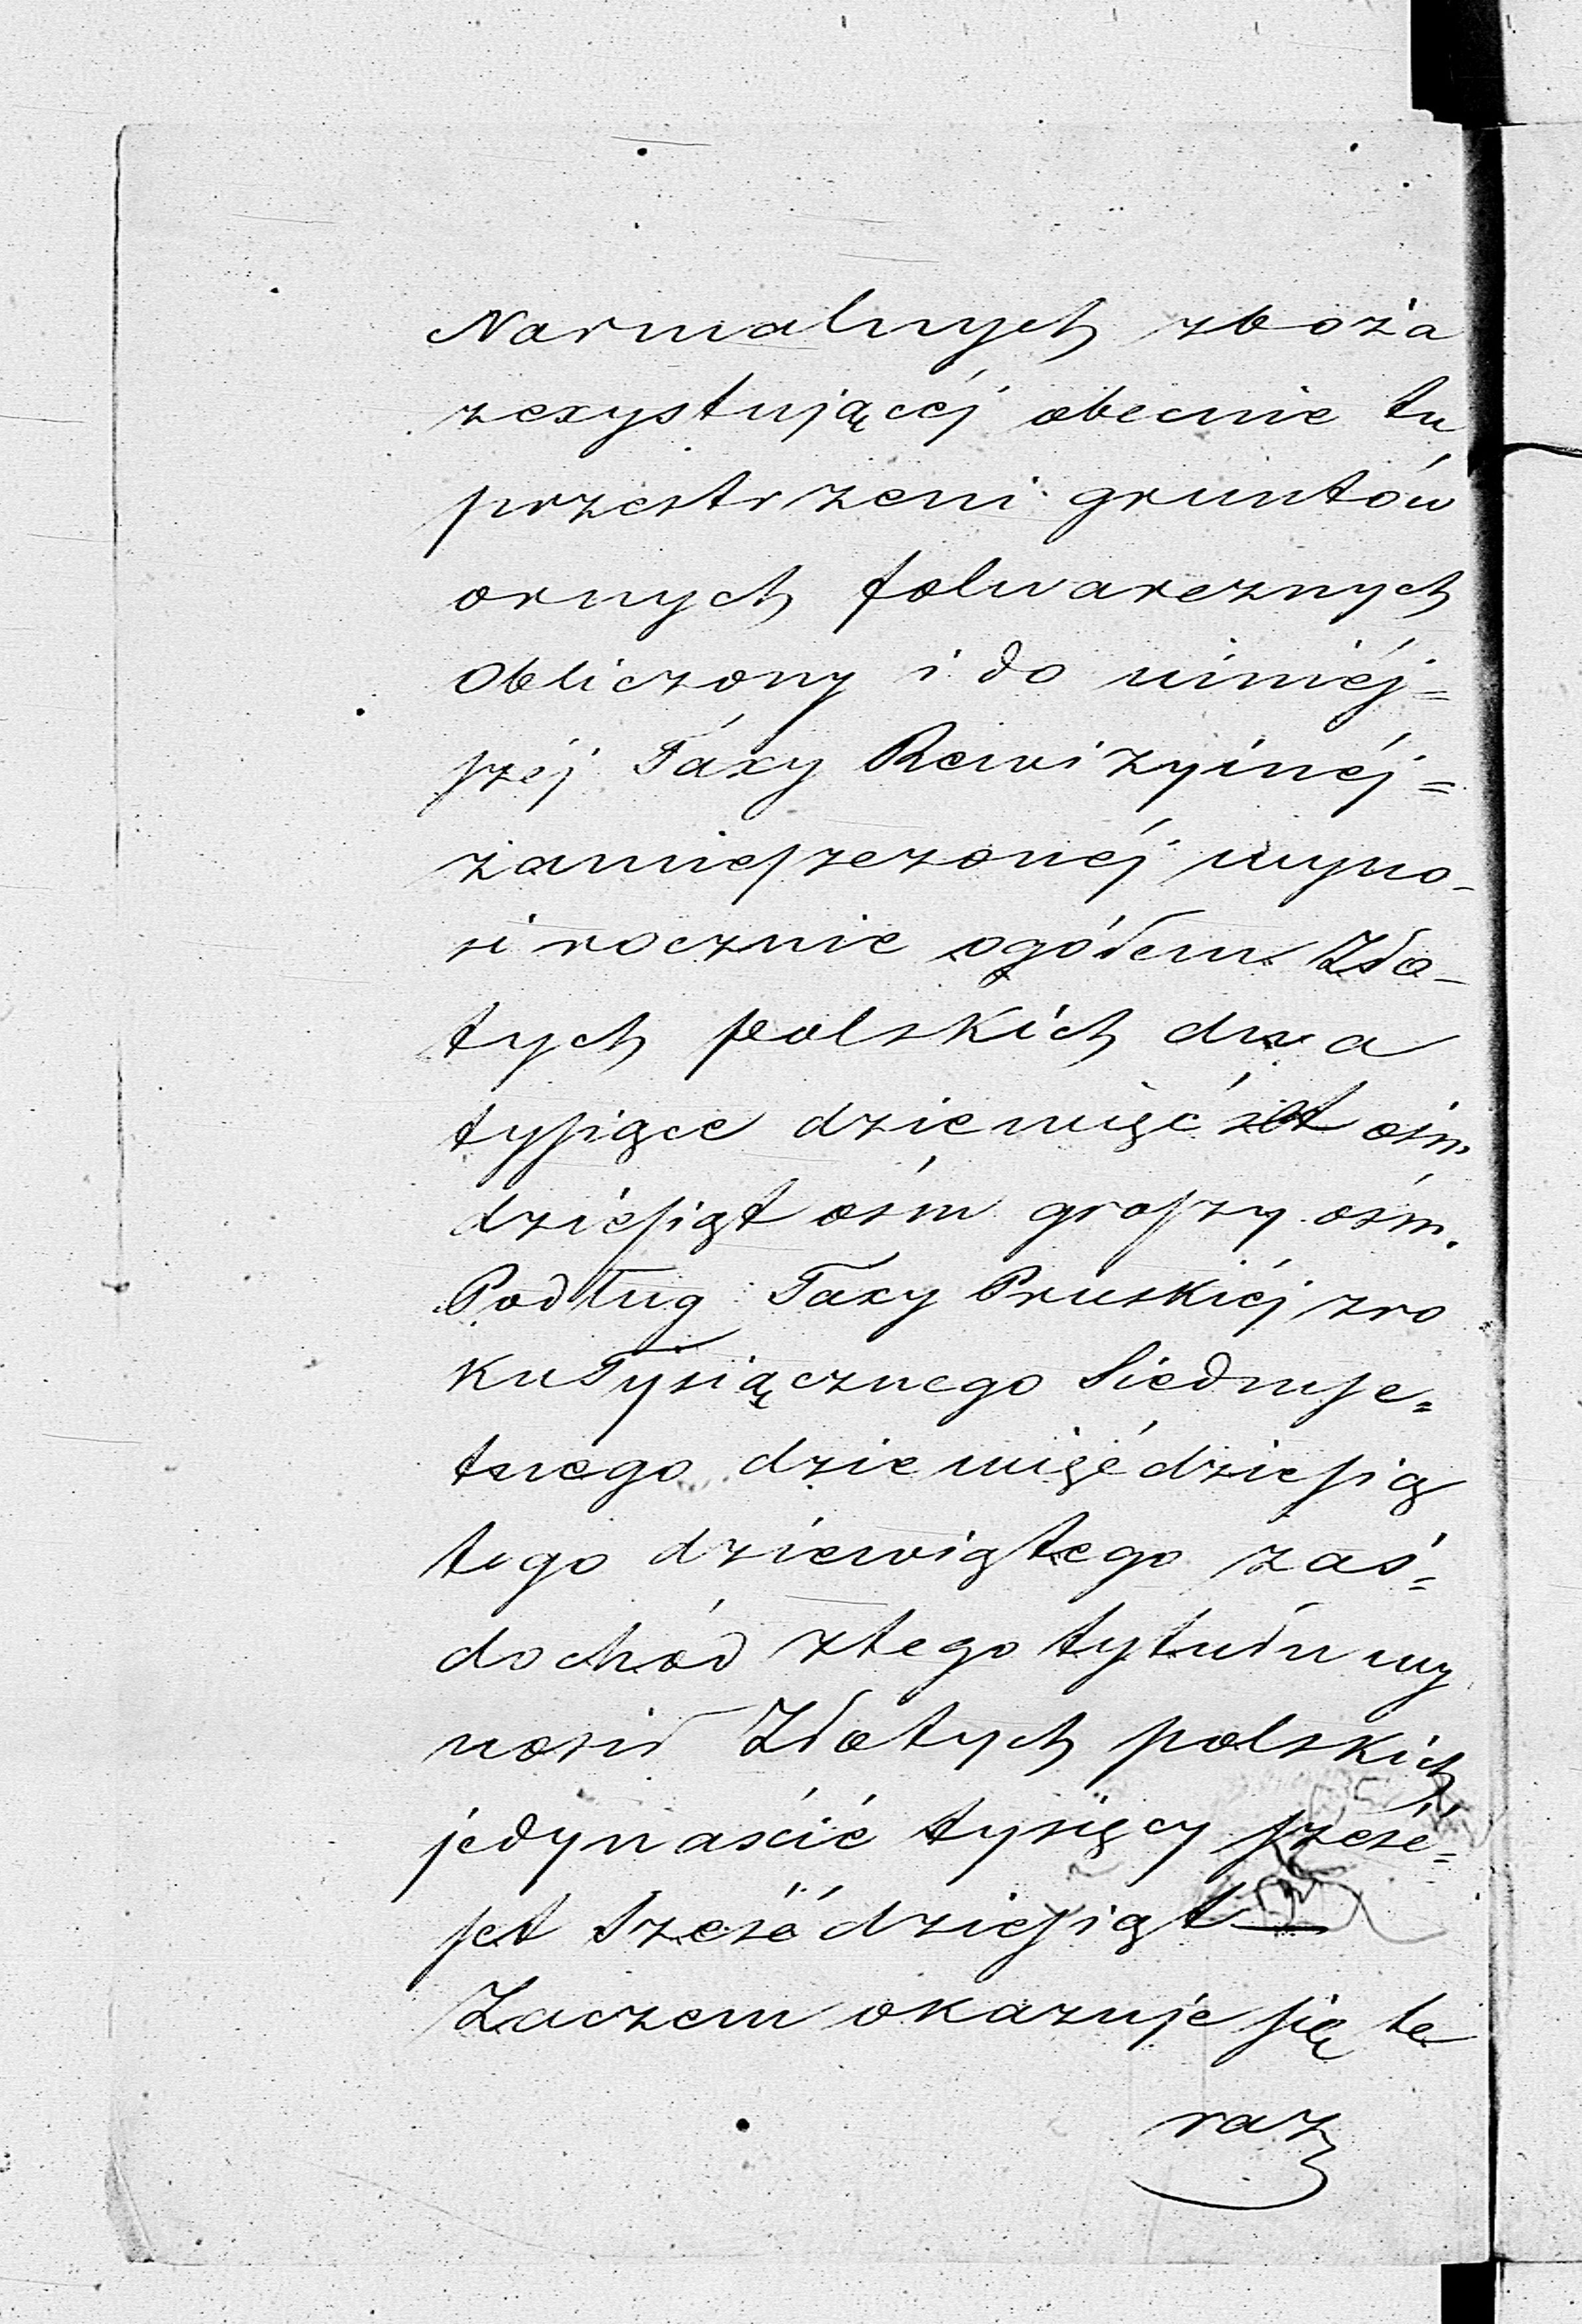 Normalnych zboża
zexystującéj obecnie tu
przestrzeni gruntów
ornych folwarcznych
Obliczony i do niniéj=
széj Taxy Rewizyinéj=
zamieszczonéj wyno-
si rocznie ogółem Zło-
tych polskich dwa
tysiące dziewięćset ośm
dziesiąt ośm groszy ośm.
Podług Taxy Pruskiéj z ro
ku Tysiącznego Siedmse=
tnego dziewięćdziesią
tego dziewiątego zaś=
dochód z tego tytułu wy
nosił Złotych polskich
jedynaście tysięcy sześć=
set sześćdziesiąt—
Zaczem okazuje się te
raz